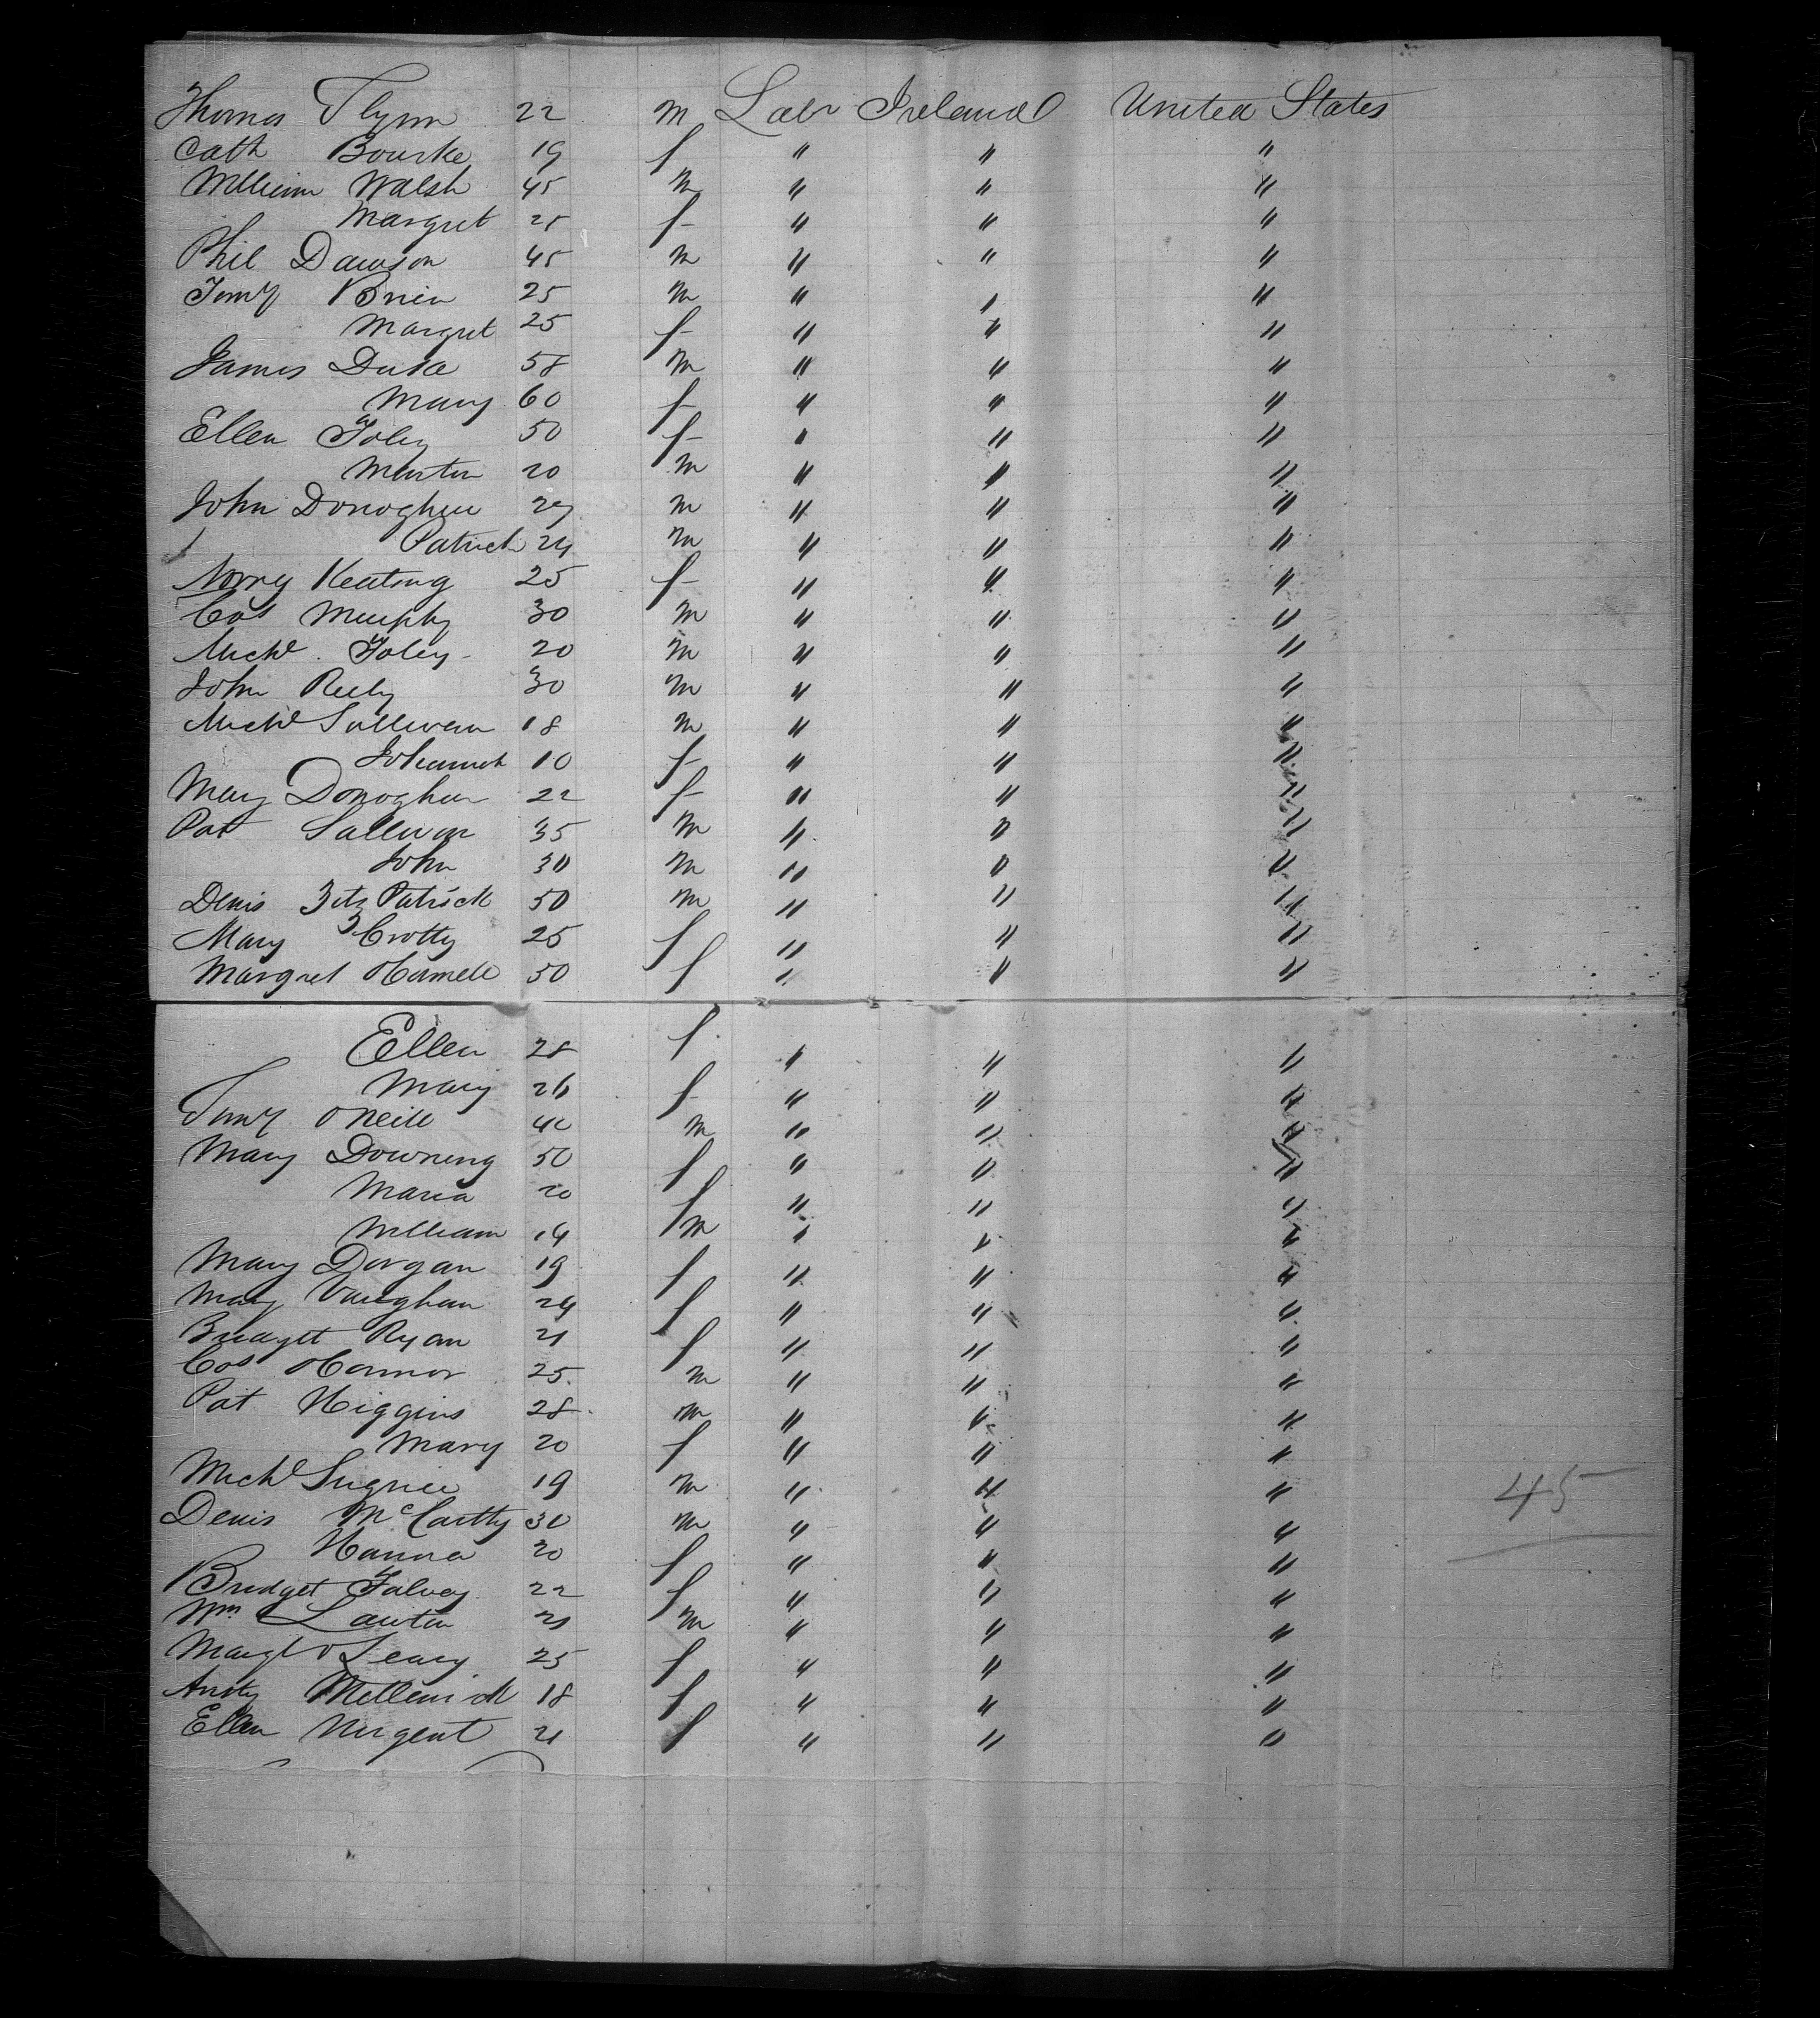 Thomas Flynn 22 m Labr Ireland United States
Cath Bourke 19 f " " "
William Walsh 45 m " " "
Margret 25 f " " "
Phil Dawson 45 m " " "
Timy Brien 25 m " " "
Margret 25 f " " "
James Duka 58 m " " "
Mary 60 f " " "
Ellen Foley 50 f " " "
Martin 20 m " " "
John Donoghue 27 m " " "
Patrick 24 m " " "
Norry Keating 25 f " " "
Cos Murphy 30 m " " "
Michl Foley 20 m " " "
John Reily 30 m " " "
Michl Sullivan 18 m " " "
Johannah 10 f " " "
Mary Donoghue 22 f " " "
Pat Sullivan 35 m " " "
John 30 m " " "
Denis Fitz Patrick 50 m " " "
Mary Crotty 25 f " " "
Margret 50 f " " "
Ellen 28 f " " "
Mary 26 f " " "
Timy ONeill 40 m " " "
Mary Downing 50 f " " "
Maria 20 f " " "
William 14 m " " "
Mary Dorgan 19 f " " "
Mary Vaughan 24 f " " "
Bridget Ryan 21 f " " "
Cos OConnor 25 m " " "
Pat Higgins 28 m " " "
Mary 20 f " " "
Michl Sugrue 19 m " " "
Denis McCartty 30 m " " "
Hanna 20 f " " "
45
Bridget Falvey 22 f " " "
Wm Lawton 21 m " " "
Margt OLeary 25 f " " "
18 f " " "
Ellen Nugent 21 f " " "